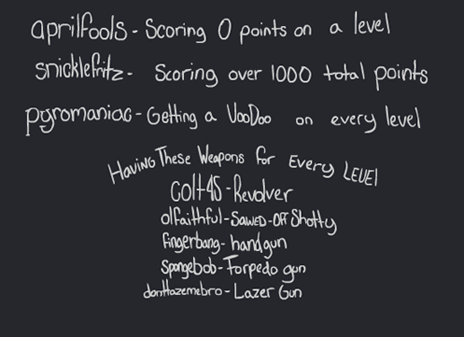 aprilfools - Scoring 0 points on a level
snicklefritz - Scoring over 1000 total points
pyromaniac - Getting a VooDoo on every level
Having These Weapons for Every Level
colt45 - Revolver
olfaithful - Sawed-Off Shotty
fingerbang - handgun
spongebob - Torpedo gun
donttazemebro - Lazer Gun